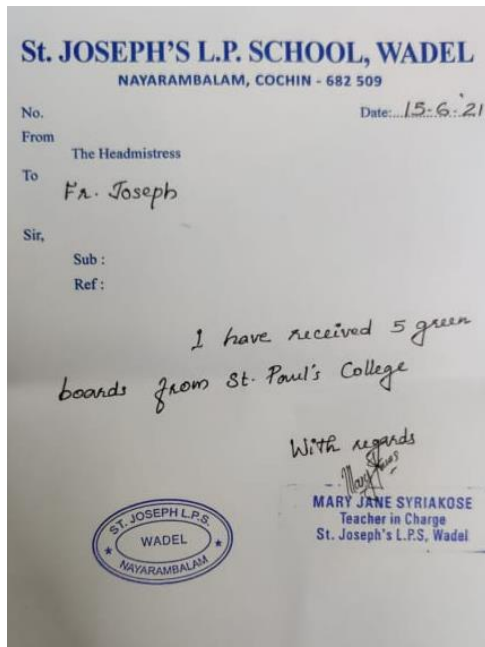 St. JOSEPH'S L.P. SCHOOL, WADEL
NAYARAMBALAM, COCHIN - 682 509
No.
Date:...15-6-'21
From
The Headmistress
To
Fr. Joseph
Sir,
Sub :
Ref :
I have received 5 green
boards from St. Paul's College
With regards
MARY JANE SYRIAKOSE
Teacher in Charge
St. Joseph's L.P.S, Wadel
ST. JOSEPH L.P.S.
WADEL
NAYARAMBALAM